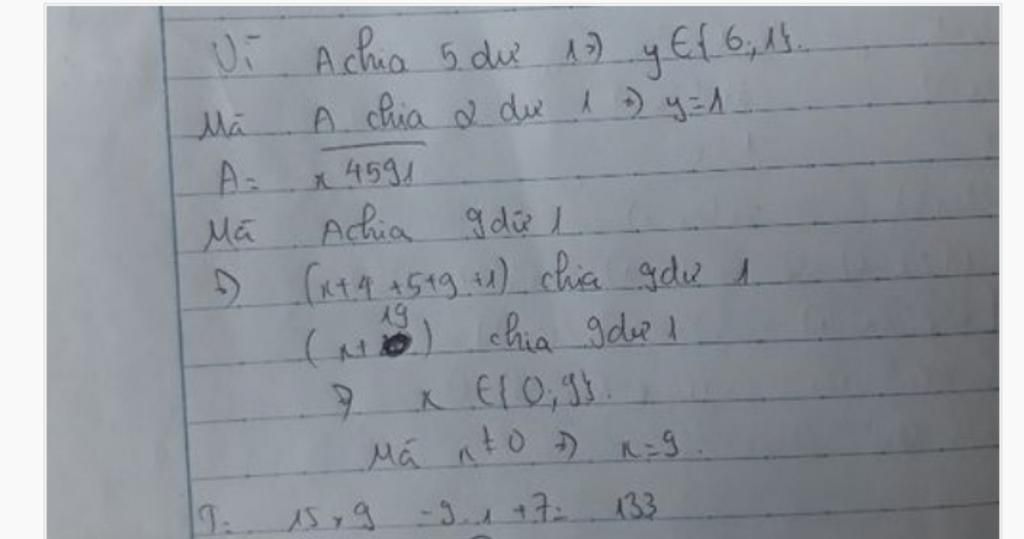 Vì A chia 5 dư 1 => y ∈ { 6; 1}.
Mà A chia 2 dư 1 => y = 1
A = x4591
Mà A chia 9 dư 1
=> (x+4+5+9+1) chia 9 dư 1
(x+19) chia 9 dư 1
=> x ∈ { 0; 9}.
Mà x ≠ 0 => x = 9.
T = 15 . 9 - 9 . 1 + 7 = 133